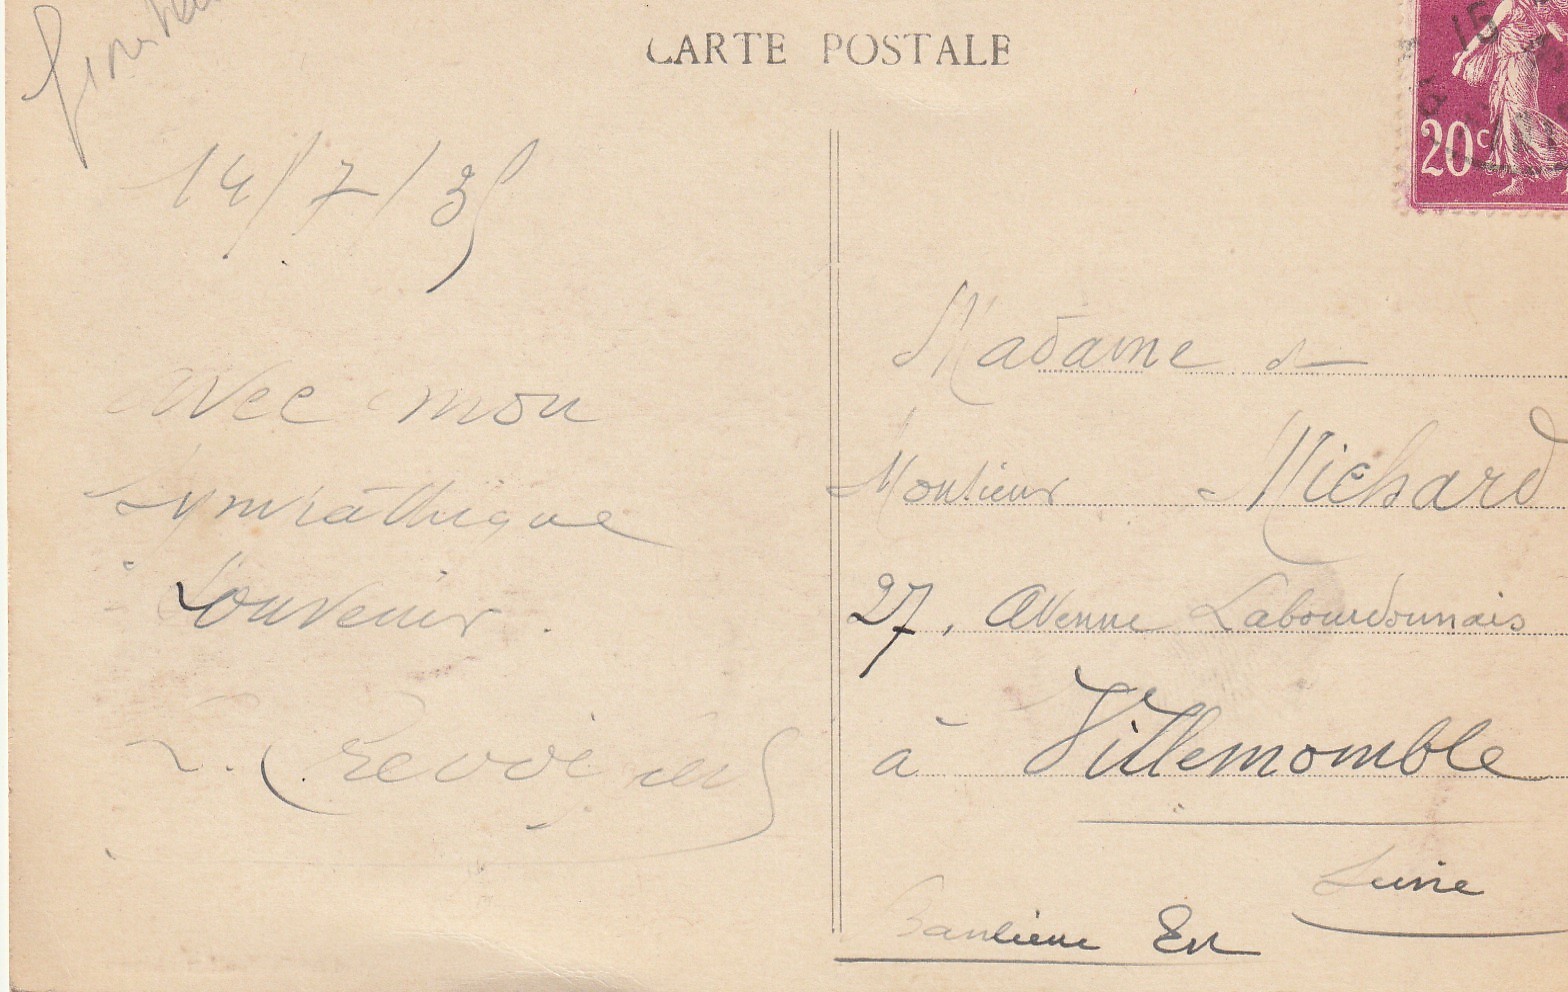 CARTE POSTALE
15
20c
14/7/35
avec mon
sympathique
souvenir.
Madame &
Monsieur Michard
27, Avenue Labourdonnais
à Villemomble
Seine
Banlieue Est